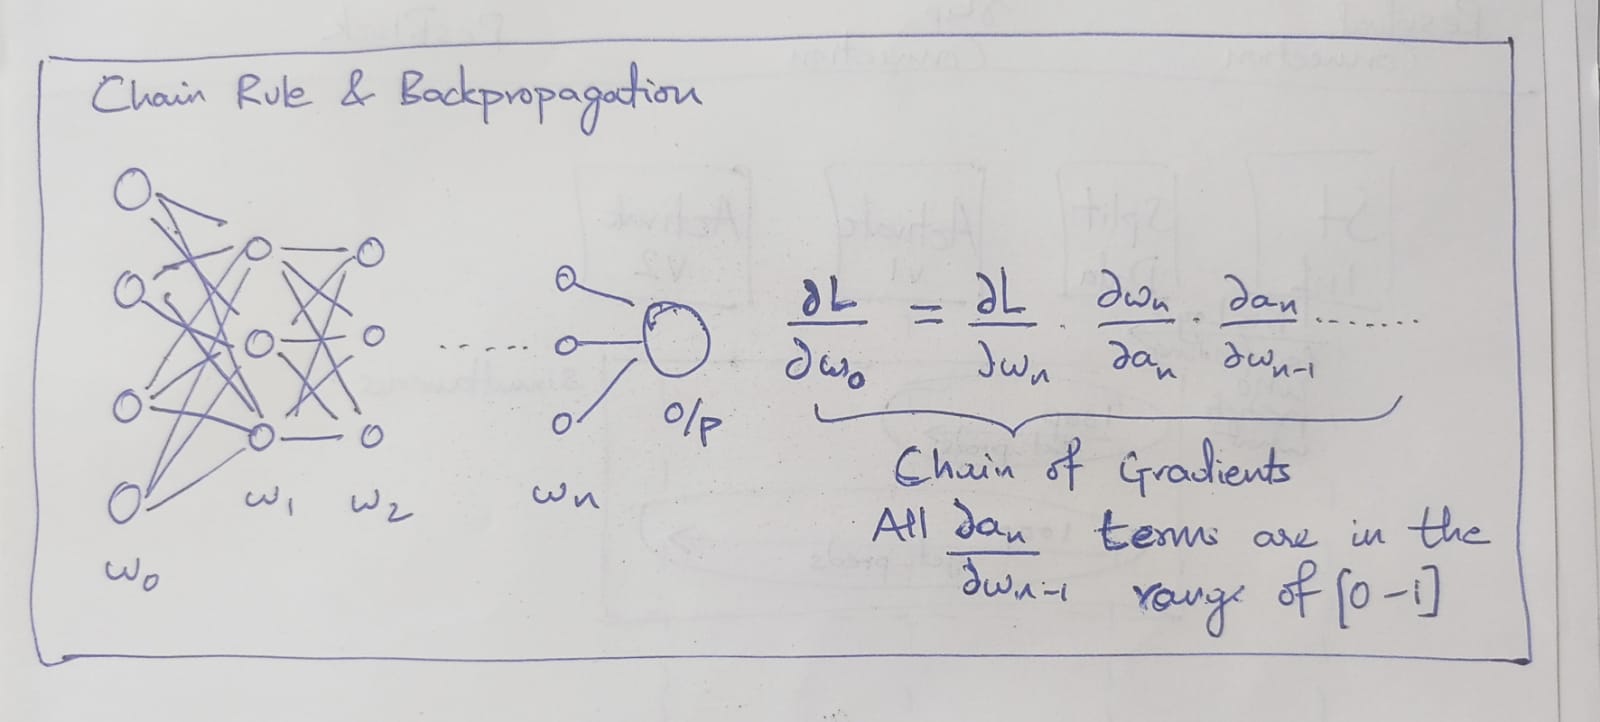 Chain Rule & Backpropagation
∂L/∂w₀ = ∂L/∂wₙ · ∂wₙ/∂aₙ · ∂aₙ/∂wₙ₋₁ .......
......
O/P
w₁ w₂ wₙ
w₀
Chain of Gradients
All ∂aₙ/∂wₙ₋₁ terms are in the
range of [0-1]